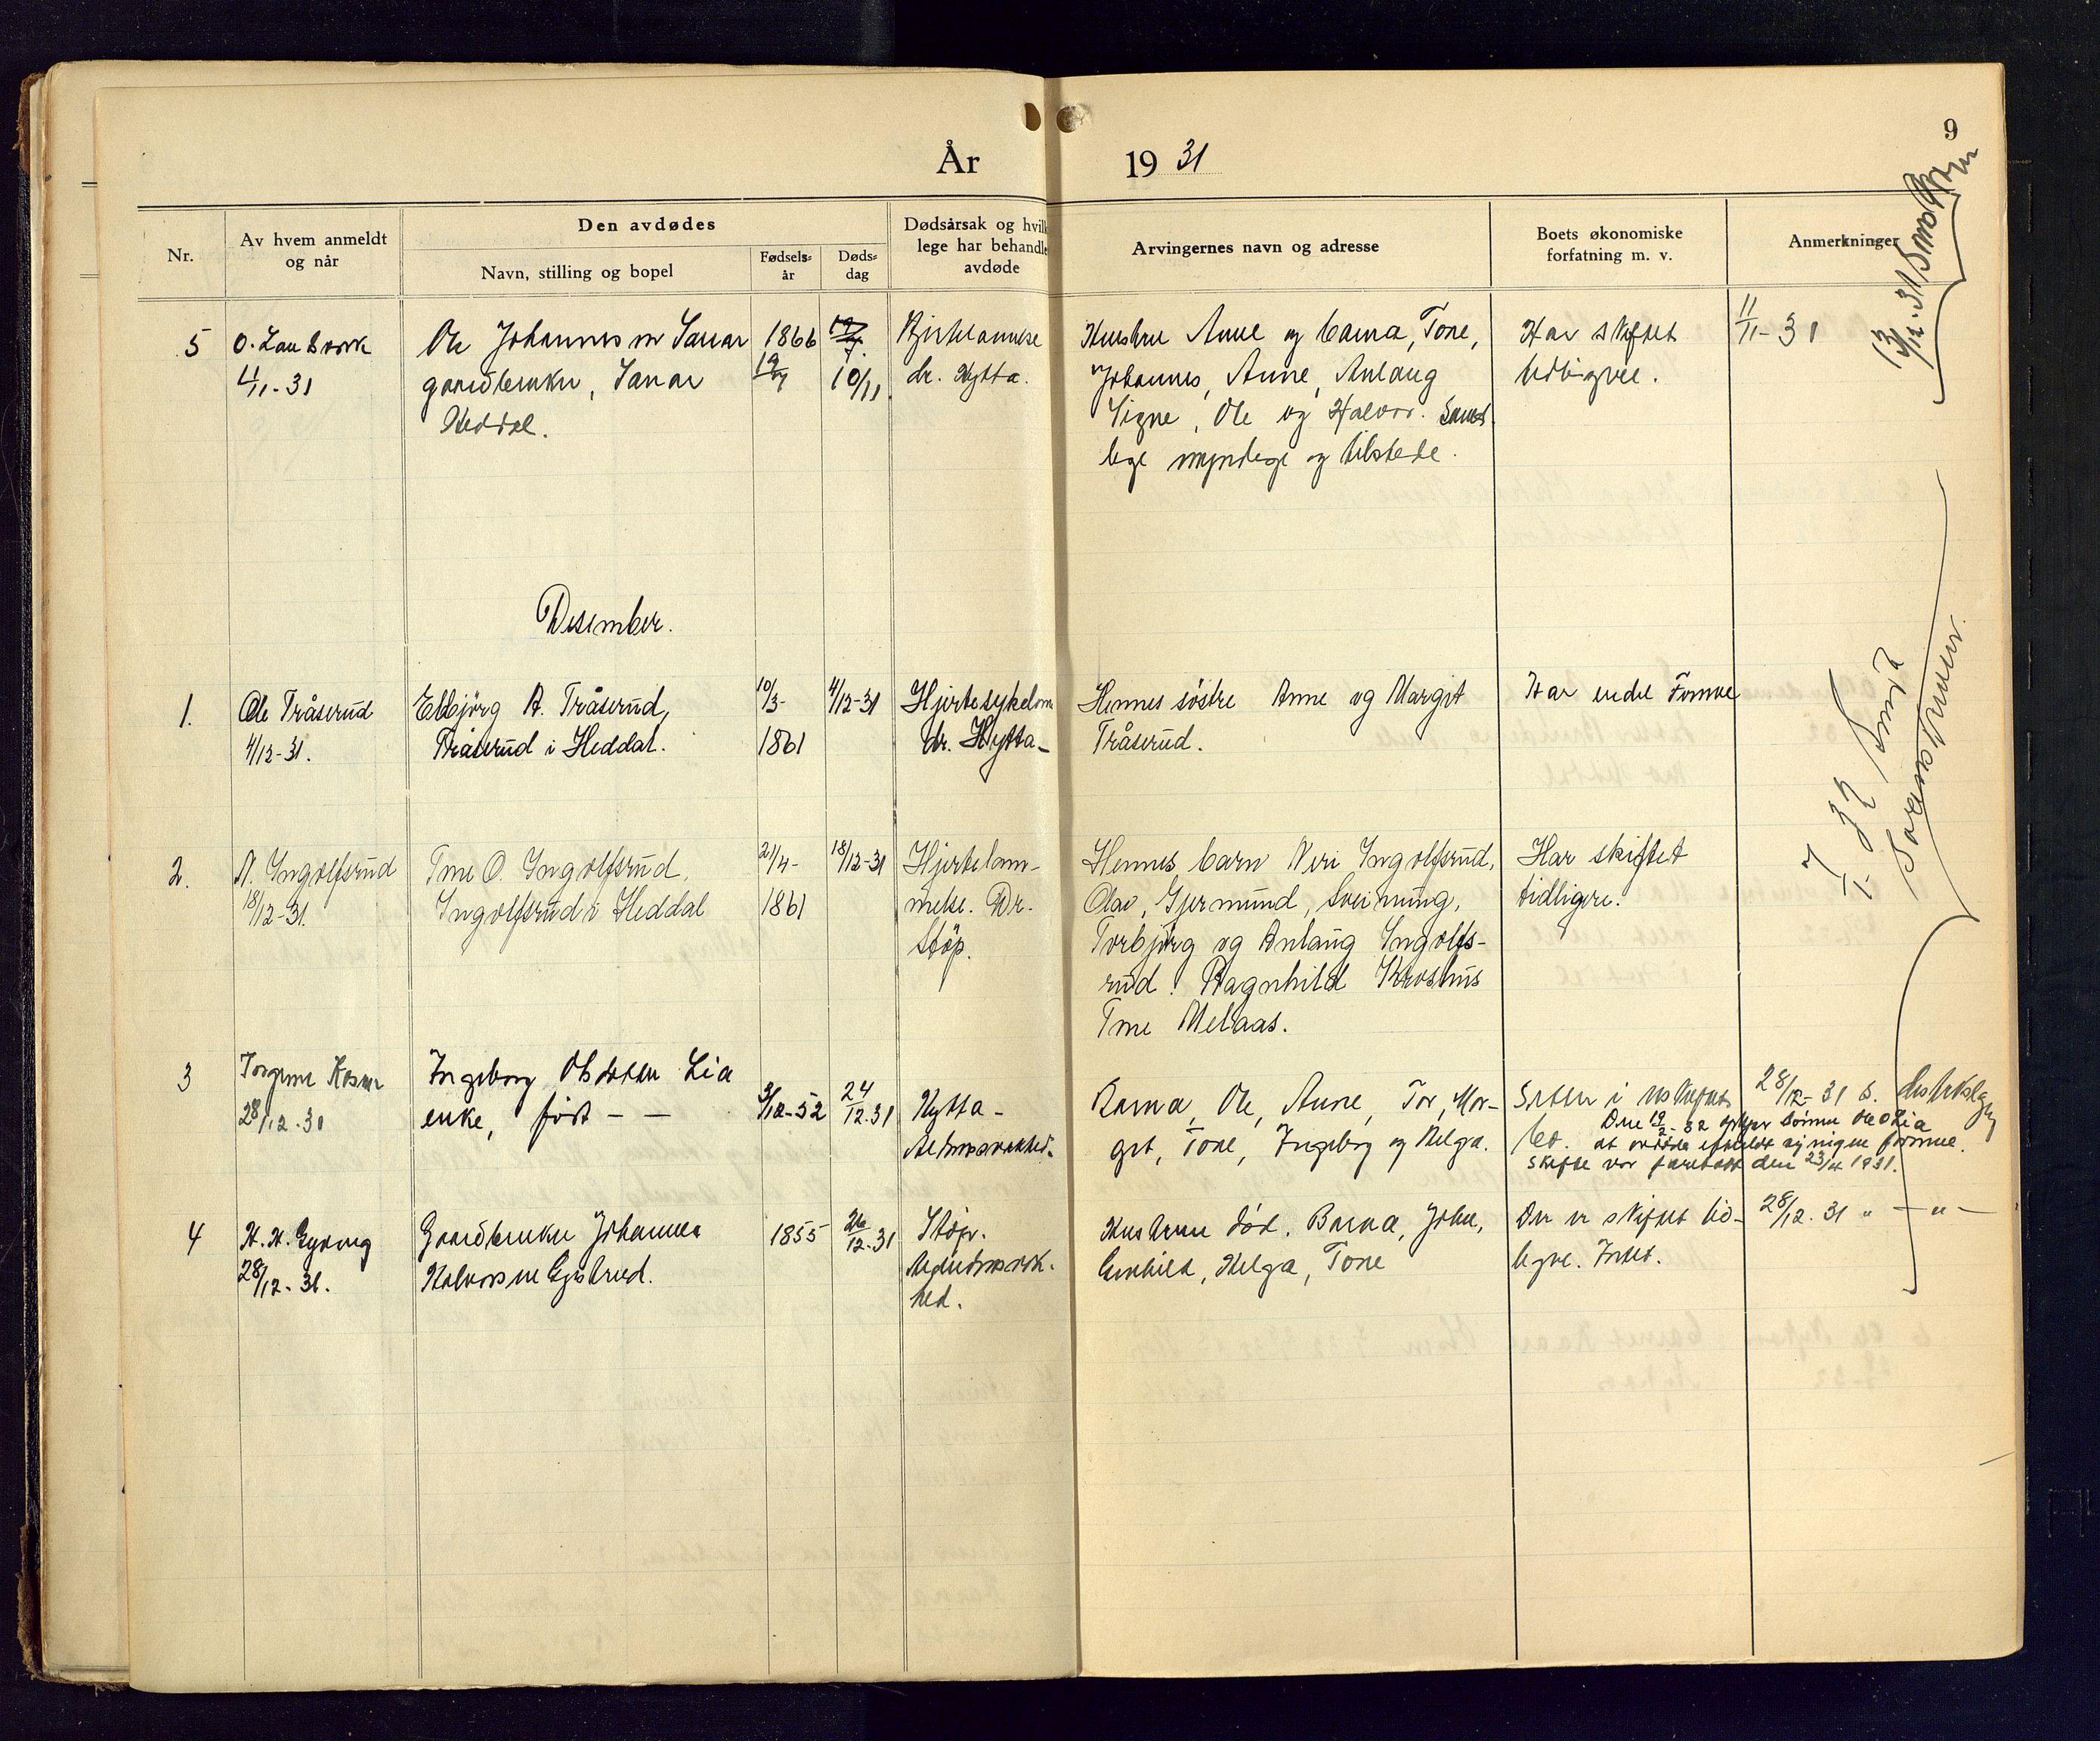 År 1931
9
Nr.
Av hvem anmeldt
og når
Den avdødes
Navn, stilling og bopel
Fødsels-
år
Døds-
dag
Dødsårsak og hvil
lege har behandle
avdøde
Arvingernes navn og adresse
Boets økonomiske
forfatning m. v.
Anmerkninger
5
11/11-31
Ole Johannesen
gaardbruker,
Heddal.
1866
19/7
10/11
Hjertelammelse
dr. Hytta.
Hustru Anne og barna, Tone,
Johannes, Anne, Anlaug
Signe, Ole og Halvor. Samt-
lige myndige og tilstede.
Har skiftet
tidligere.
11/11-31
13/12-31
Desember.
1.
Ole Tråserud
4/12-31.
Eldbjörg A. Tråserud,
Tråserud i Heddal.
10/3-
1861
4/12-31
Hjertesykdom
dr. Hytta-
Hennes söstre Anne og Margit
Tråserud.
Har endel Formue
2.
N. Ingolfsrud
18/12-31.
Tone O. Ingolfsrud,
Ingolfsrud i Heddal
21/4-
1861
18/12-31
Hjertelam-
melse. Dr.
Støp.
Hennes barn Neri Ingolfsrud,
Olav, Gjermund, Sveinung,
Torbjörg og Anlaug Ingolfs-
rud. Ragnhild Kroshus
Tone Melaas.
Har skiftet
tidligere.
7/1-32
3
28/12.31
Ingeborg Olsdatter Lia
enke, født - -
3/12-52
24/12.31
Hytta-
Barna, Ole, Anne, Tor, Mar-
git, Tone, Ingeborg og Helga.
Sitter i uskiftet
bo.
28/12-31 S.
Den 19/2-32 sønnen Ole O Lia
at avdøde efterlot sig nogen formue.
Skifte var foretatt den 23/4 1931.
4
28/12-31.
Gaardbruker Johannes
Halvorsen
1855
26/12-31
Støp.
Alderdomssvak-
hed.
Hustruen død. Barna, John,
Gunhild, Helga, Tone
Der er skiftet tid-
ligere. Intet.
28/12.31 " - " -